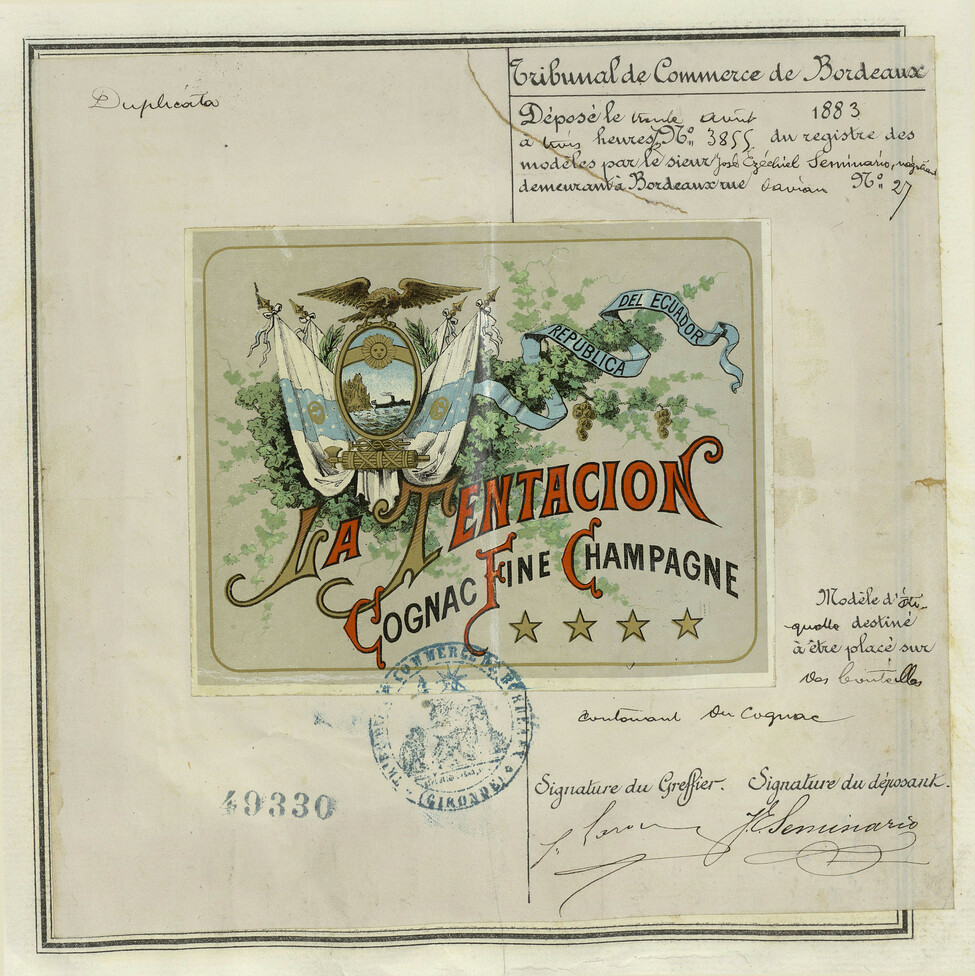 Duplicata
Tribunal de Commerce de Bordeaux
Déposé le trente avril 1883
à trois heures, No. 3855 du registre des
modèles par le sieur José Ezéchiel Seminario, négociant
demeurant à Bordeaux rue No. 27
REPUBLICA DEL ECUADOR
LA TENTACION
COGNAC FINE CHAMPAGNE
Modèle d'éti-
quette destiné
à être placé sur
des bouteilles
contenant du Cognac
COMMERCE DE BORDEAUX
(GIRONDE)
49330
Signature du Greffier. Signature du déposant.
J E Seminario